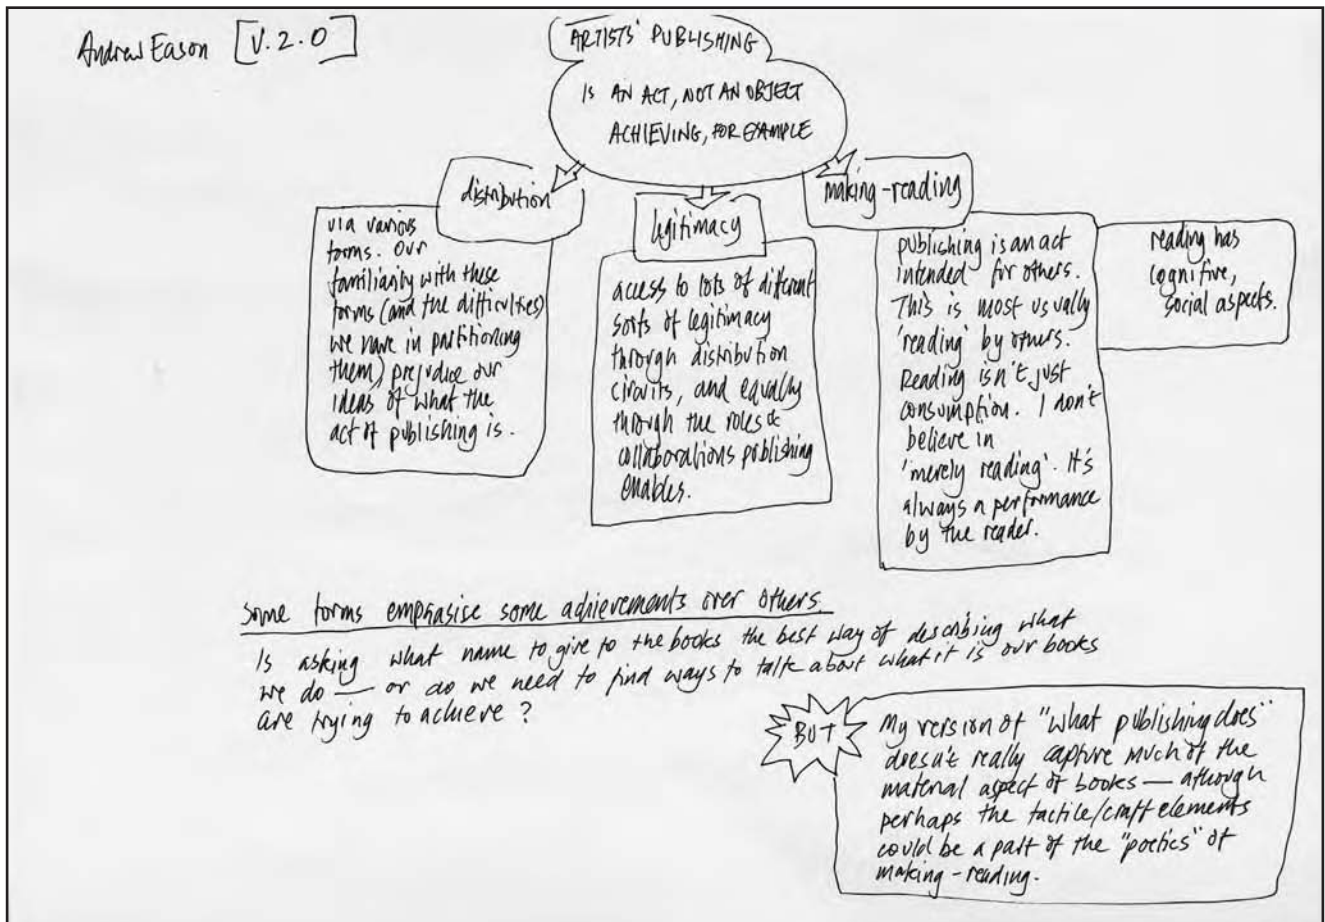 Andrew Eason [V.2.0]
ARTISTS' PUBLISHING
IS AN ACT, NOT AN OBJECT
ACHIEVING, FOR EXAMPLE
distribution
via various
forms. Our
familiarity with these
forms (and the difficulties)
we have in partitioning
them) prejudice our
ideas of what the
act of publishing is.
legitimacy
access to lots of different
sorts of legitimacy
through distribution
circuits, and equally
through the roles &
collaborations publishing
enables.
making-reading
publishing is an act
intended for others.
This is most usually
'reading' by others.
Reading isn't just
consumption. I don't
believe in
'merely reading'. It's
always a performance
by the reader.
reading has
cognitive,
social aspects.
Some forms emphasise some achievements over others.
Is asking what name to give to the books the best way of describing what
we do — or do we need to find ways to talk about what it is our books
are trying to achieve?
BUT
My version of "what publishing does"
doesn't really capture much of the
material aspect of books — athough
perhaps the tactile/craft elements
could be a part of the "poetics" of
making-reading.